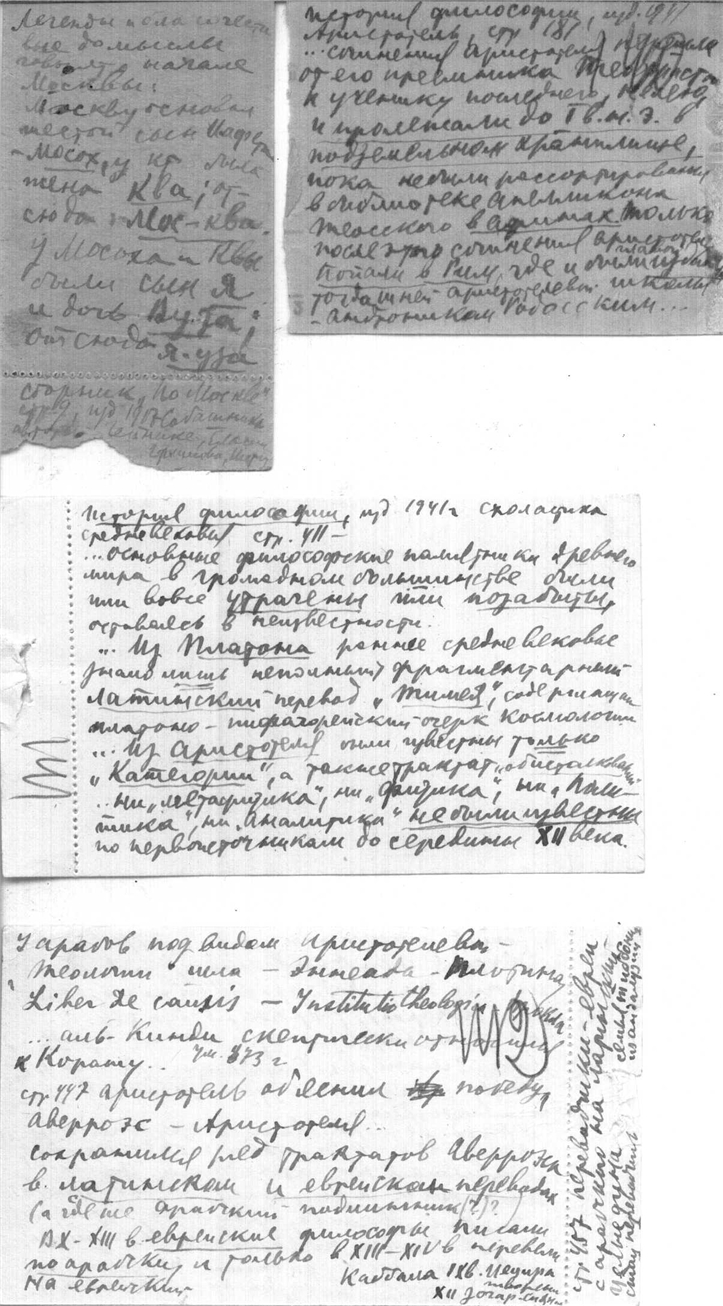 Легенды и благочести
вые домыслы
говорят о начале
Москвы:
Москву основал
шестой сын Иафета
- Мосох, у кот. была
жена Ква; от-
сюда - Мос-ква.
У Мосоха и Квы
были сын Я
и дочь Вуза;
отсюда Я-уза
сборник "По Москве"
стр 9, изд 1917 Сабашников
История философии, изд. 1941
Аристотель, стр 181
...сочинения Аристотеля перешли
от его преемника Теофраста
к ученику последнего, Нелею,
и пролежали до I в. н. э. в
подземельном хранилище,
пока не были рассортированы
в библиотеке Апелликона
Теосского в Афинах. Только
после этого сочинения Аристотеля
попали в Рим, где и были изданы
главой
тогдашней аристотелевой школы
- Андроником Родосским...
История философии, изд 1941 г схоластика
средневековья стр. 411 -
... основные философские памятники древнего
мира в громадном большинстве были
или вовсе утрачены или позабыты,
оставаясь в неизвестности.
... Из Платона раннее средневековье
знало лишь неполный фрагментарный
латинский перевод "Тимея", содержащий
платоно-пифагорейский очерк космологии
... Из Аристотеля были известны только
"Категории", а также трактат "об истолковании"
.. ни "Метафизика", ни "Физика", ни "Поли-
тика", ни "Аналитика" не были известны
по первоисточникам до середины XII века.
У арабов под видом Аристотелевой -
Теологии шла - Эннеада - Плотина
Liber De causis - Institutio theologia Прокла
... аль-Кинди скептически относился
к Корану.. ум. 873 г
стр 447 Аристотель объяснил природу,
Аверроэс - Аристотеля...
сохранился ряд трактатов Аверроэса
в латинском и еврейском переводах
(а где же арабский подлинник(?)?
В X - XIII в еврейские философы писали
по арабски, и только в XIII-XIV в перевели
на еврейский
Каббала IX в. Иецира
творения
XII Зогар-Сияние
стр 457 переводчики-евреи
с арабского на латинский
целые династии
семьи Тибонов
из Андалузии